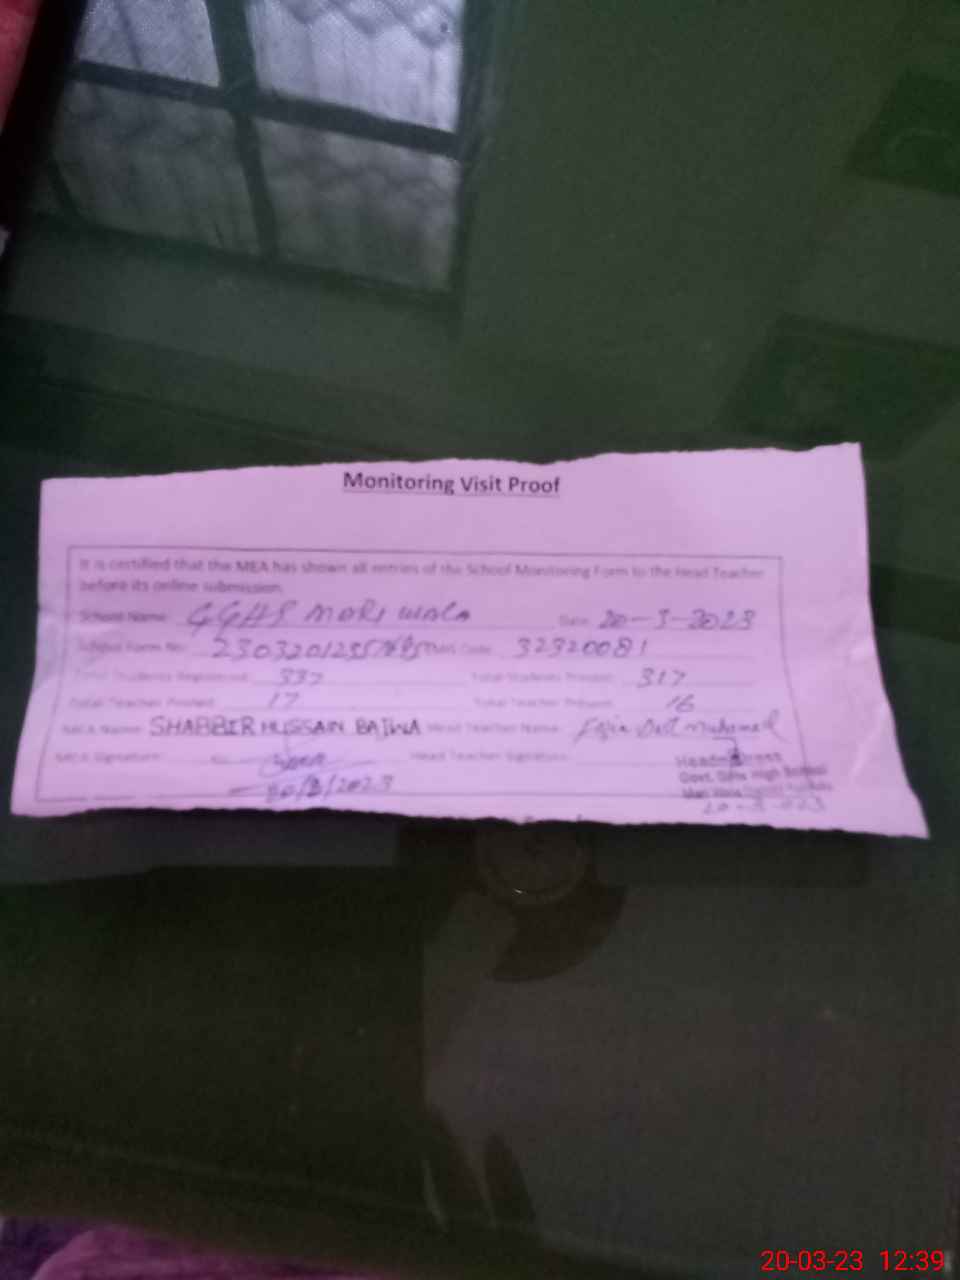 Monitoring Visit Proof
It is certified that the MEA has shown all entries of the School Monitoring Form to the Head Teacher
before its online submission.
School Name: GGHS MARI WALA Date: 20-3-2023
School Form No: EMIS Code: 32320081
Total Students Registered: 337 Total Students Present: 317
Total Teacher Posted: 17 Total Teacher Present: 16
MEA Name: SHABBIR HUSSAIN BAJWA Head Teacher Name:
MEA Signature: Head Teacher Signature:
Headmistress
20/3/2023 Govt. Girls High School
Mari Wala
20-3-023
20-03-23 12:39